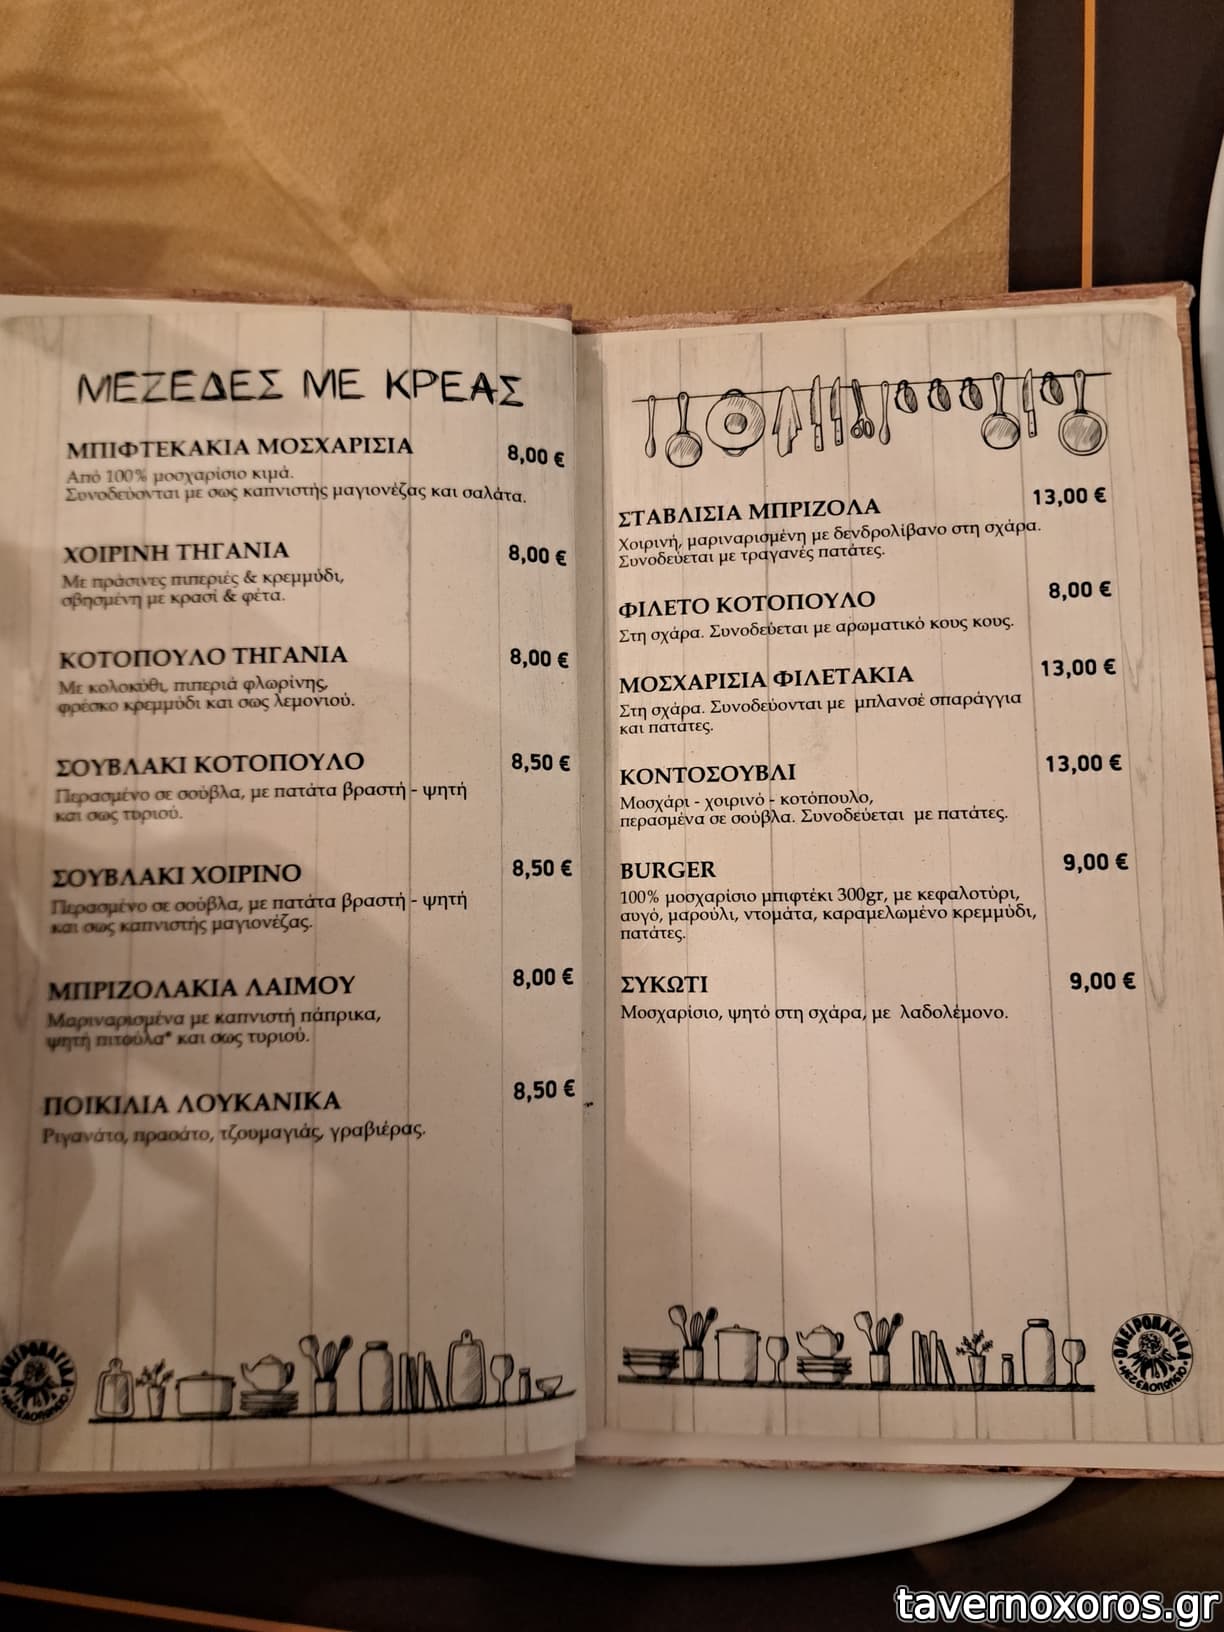 ΜΕΖΕΔΕΣ ΜΕ ΚΡΕΑΣ
ΜΠΙΦΤΕΚΑΚΙΑ ΜΟΣΧΑΡΙΣΙΑ 8,00 €
Από 100% μοσχαρίσιο κιμά.
Συνοδεύονται με σως καπνιστής μαγιονέζας και σαλάτα.
ΧΟΙΡΙΝΗ ΤΗΓΑΝΙΑ 8,00 €
Με πράσινες πιπεριές & κρεμμύδι,
σβησμένη με κρασί & φέτα.
ΚΟΤΟΠΟΥΛΟ ΤΗΓΑΝΙΑ 8,00 €
Με κολοκύθι, πιπεριά φλωρίνης,
φρέσκο κρεμμύδι και σως λεμονιού.
ΣΟΥΒΛΑΚΙ ΚΟΤΟΠΟΥΛΟ 8,50 €
Περασμένο σε σούβλα, με πατάτα βραστή - ψητή
και σως τυριού.
ΣΟΥΒΛΑΚΙ ΧΟΙΡΙΝΟ 8,50 €
Περασμένο σε σούβλα, με πατάτα βραστή - ψητή
και σως καπνιστής μαγιονέζας.
ΜΠΡΙΖΟΛΑΚΙΑ ΛΑΙΜΟΥ 8,00 €
Μαριναρισμένα με καπνιστή πάπρικα,
ψητή πιτούλα* και σως τυριού.
ΠΟΙΚΙΛΙΑ ΛΟΥΚΑΝΙΚΑ 8,50 €
Ριγανάτο, πρασάτο, τζουμαγιάς, γραβιέρας.
ΟΝΕΙΡΟΠΑΓΙΔΑ
ΜΕΖΕΔΟΠΩΛΕΙΟ
ΣΤΑΒΛΙΣΙΑ ΜΠΡΙΖΟΛΑ 13,00 €
Χοιρινή, μαριναρισμένη με δενδρολίβανο στη σχάρα.
Συνοδεύεται με τραγανές πατάτες.
ΦΙΛΕΤΟ ΚΟΤΟΠΟΥΛΟ 8,00 €
Στη σχάρα. Συνοδεύεται με αρωματικό κους κους.
ΜΟΣΧΑΡΙΣΙΑ ΦΙΛΕΤΑΚΙΑ 13,00 €
Στη σχάρα. Συνοδεύονται με μπλανσέ σπαράγγια
και πατάτες.
ΚΟΝΤΟΣΟΥΒΛΙ 13,00 €
Μοσχάρι - χοιρινό - κοτόπουλο,
περασμένα σε σούβλα. Συνοδεύεται με πατάτες.
BURGER 9,00 €
100% μοσχαρίσιο μπιφτέκι 300gr, με κεφαλοτύρι,
αυγό, μαρούλι, ντομάτα, καραμελωμένο κρεμμύδι,
πατάτες.
ΣΥΚΩΤΙ 9,00 €
Μοσχαρίσιο, ψητό στη σχάρα, με λαδολέμονο.
ΟΝΕΙΡΟΠΑΓΙΔΑ
ΜΕΖΕΔΟΠΩΛΕΙΟ
tavernoxoros.gr